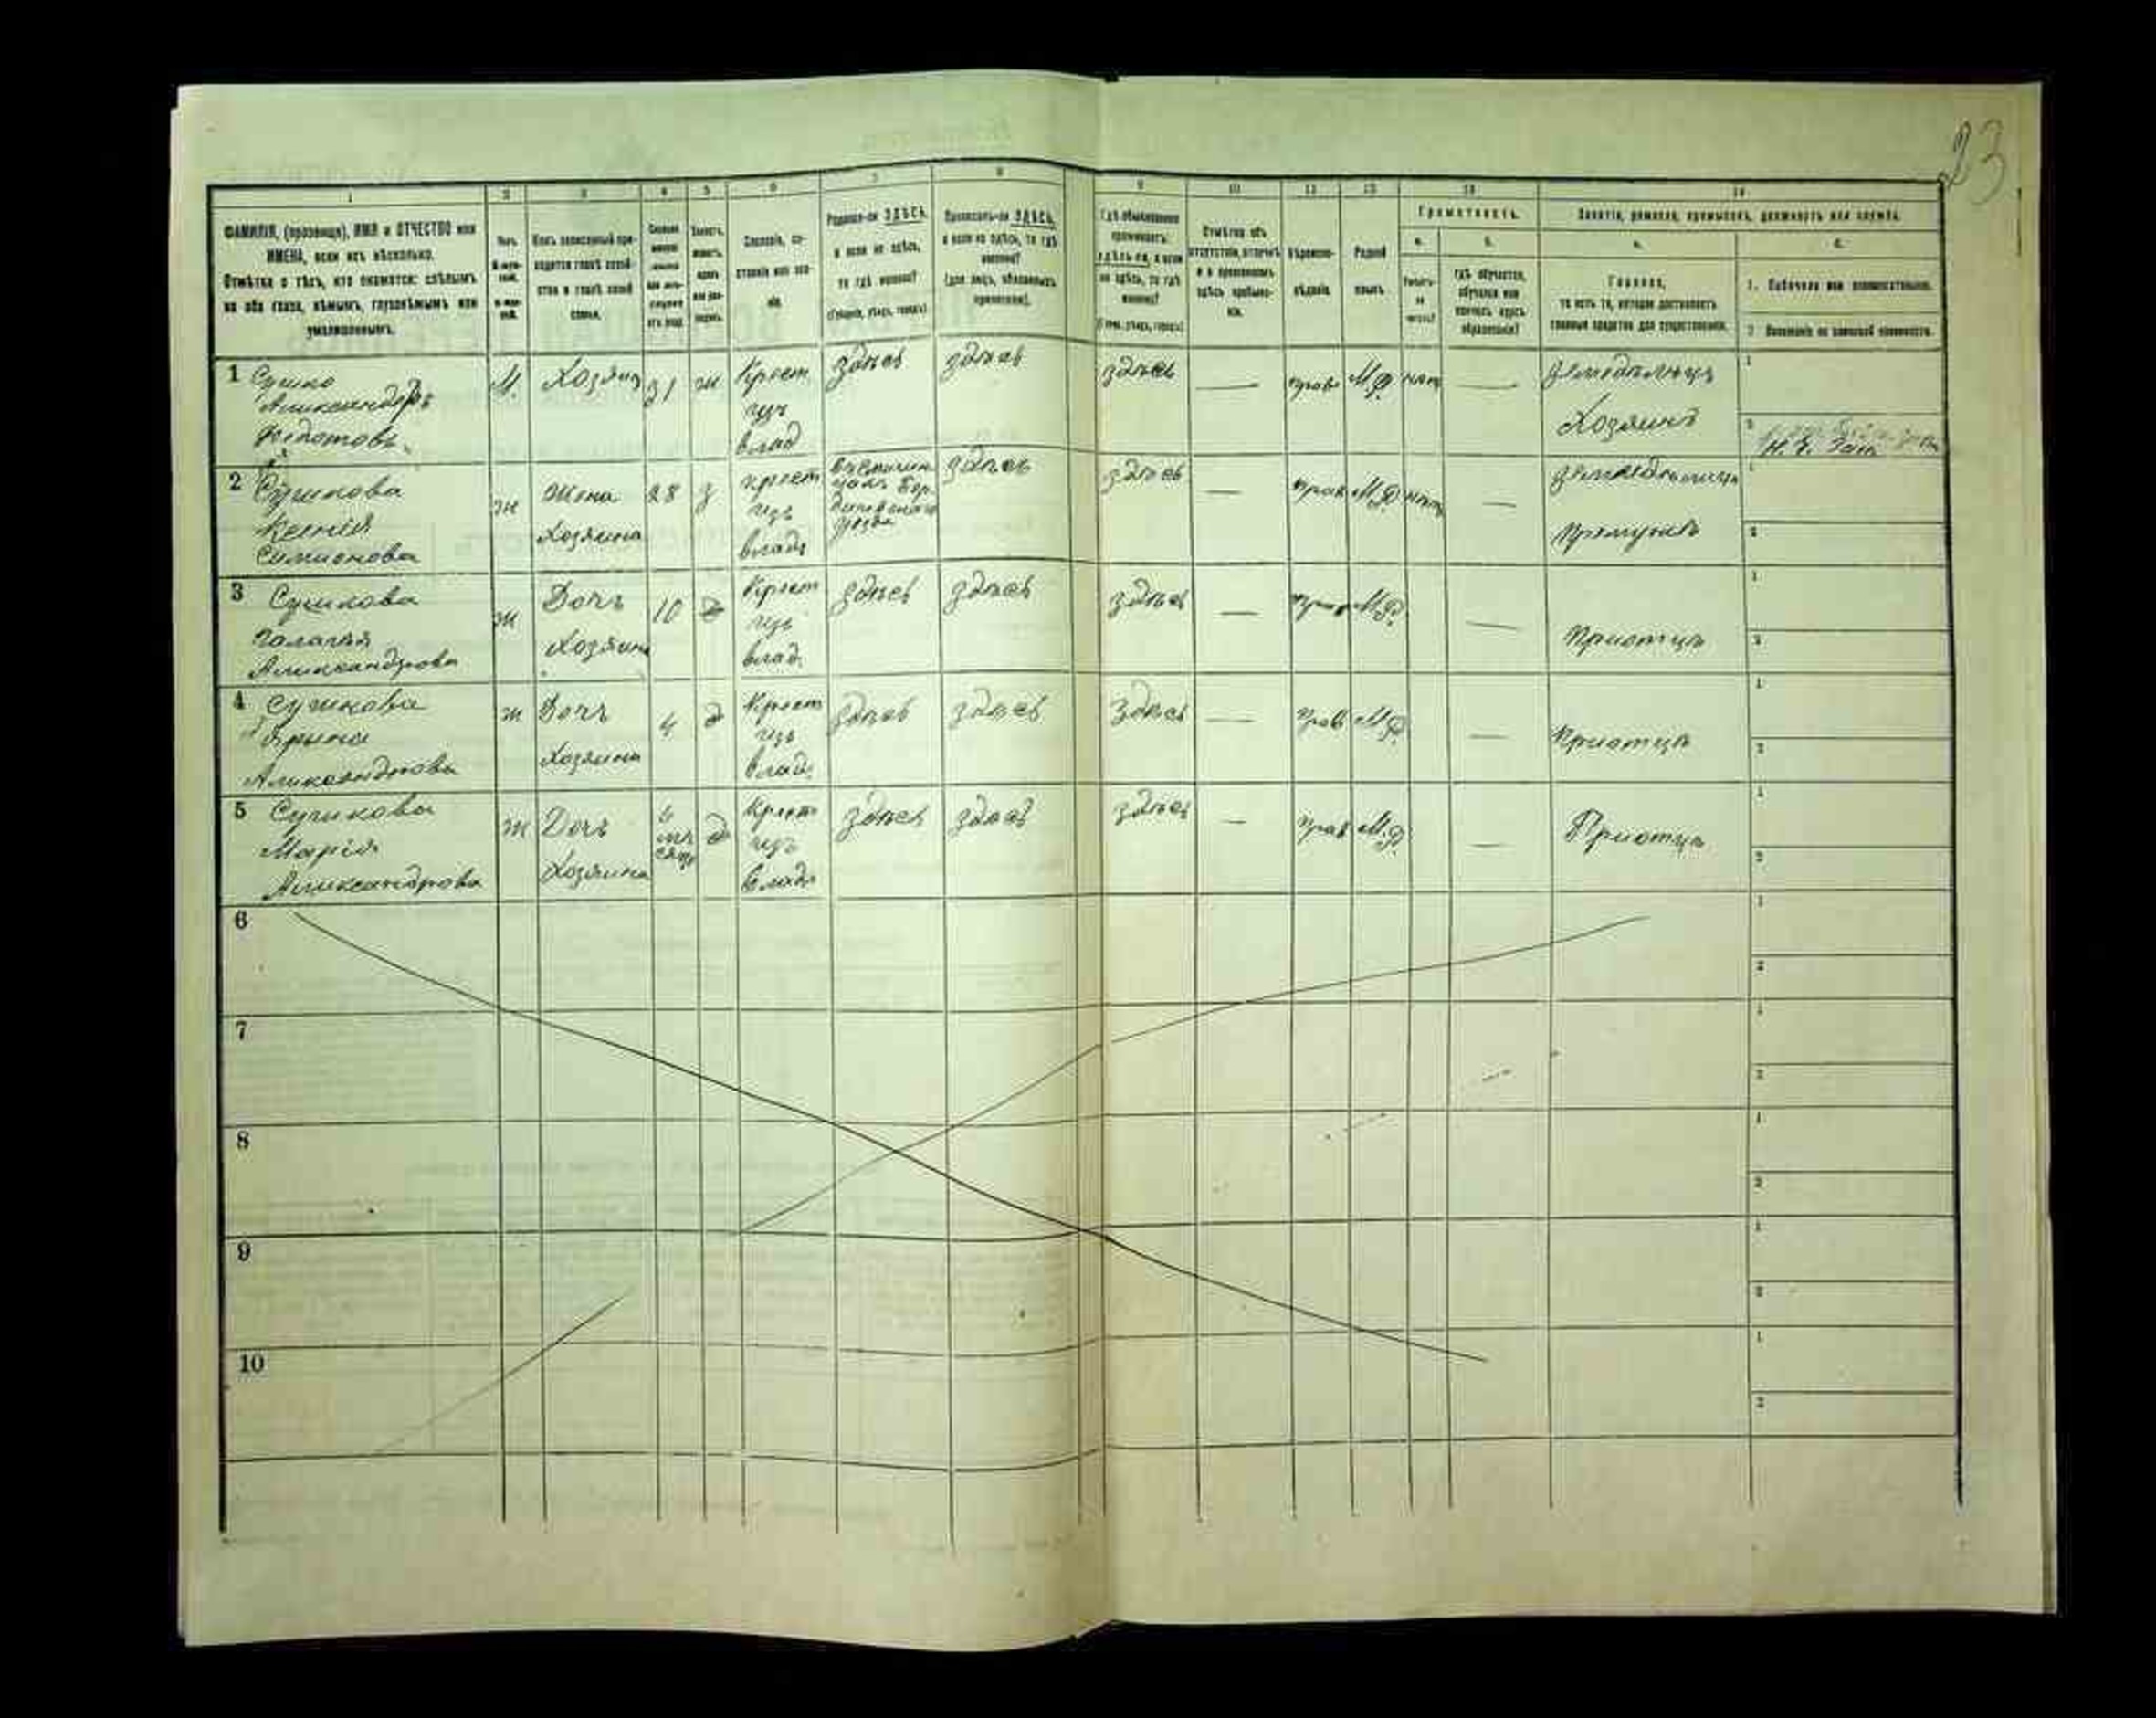 23
1 2 3 4 5 6 7 8 9 10 11 12 13 14
ФАМИЛІЯ, (прозвище), ИМЯ и ОТЧЕСТВО или
ИМЕНА, если ихъ нѣсколько.
Отмѣтка о тѣхъ, кто окажется: слѣпымъ
на оба глаза, нѣмымъ, глухонѣмымъ или
умалишеннымъ.
Сословіе, со-
стояніе или зва-
ніе.
Родился-ли ЗДѢСЬ,
а если не здѣсь,
то гдѣ именно?
(Губернія, уѣздъ, городъ)
Приписанъ-ли ЗДѢСЬ,
а если не здѣсь, то гдѣ
именно?
(для лицъ, обязанныхъ
припискою).
Гдѣ обыкновенно
проживаетъ:
здѣсь-ли, а если
не здѣсь, то гдѣ
именно?
Отмѣтка объ
отсутствіи, отлучкѣ
и о временномъ
здѣсь пребыва-
ніи.
Вѣроиспо-
вѣданіе.
Родной
языкъ.
Грамотность.
а. б.
Умѣетъ-
ли
читать?
гдѣ обучается,
обучался или
кончилъ курсъ
образованія?
Занятіе, ремесло, промыселъ, должность или служба.
а. б.
Главное,
то есть то, которое доставляетъ
главныя средства для существованія.
1. Побочное или вспомогательное.
2. Положеніе по воинской повинности.
1 Сушко
Александръ
Федотовъ.
М. Хозяинъ 31 ж Крест.
изъ
влад
здѣсь здѣсь здѣсь — прав М.Р нѣт —
Земледѣлецъ
Хозяинъ
1
2
2 Сушкова
Ксенія
Симионова
ж Жена
Хозяина
28 з крест
изъ
влад.
здѣсь здѣсь — прав М.Р нѣт —
При мужѣ
1
2
3 Сушкова
Палагѣя
Александрова
ж Дочь
Хозяина
10 д Крест
изъ
влад.
здѣсь здѣсь здѣсь — прав М.Р. —
При отцѣ
1
2
4 Сушкова
Ярына
Александрова
ж Дочь
Хозяина
4 д Крест
изъ
влад.
здѣсь здѣсь здѣсь — прав М.Р. —
При отцѣ
1
2
5 Сушкова
Марія
Александрова
ж Дочь
Хозяина
д Крест
изъ
влад.
здѣсь здѣсь здѣсь — прав М.Р. —
При отцѣ
1
2
6
1
2
7
1
2
8
1
2
9
1
2
10
1
2